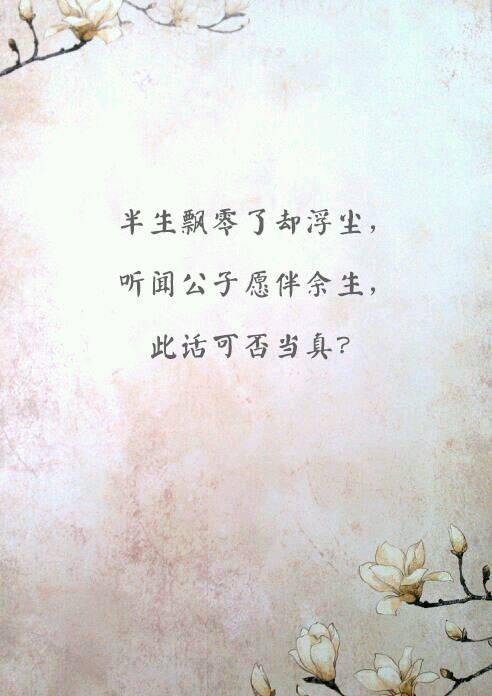 半生飘零了却浮尘，
听闻公子愿伴余生，
此话可否当真?